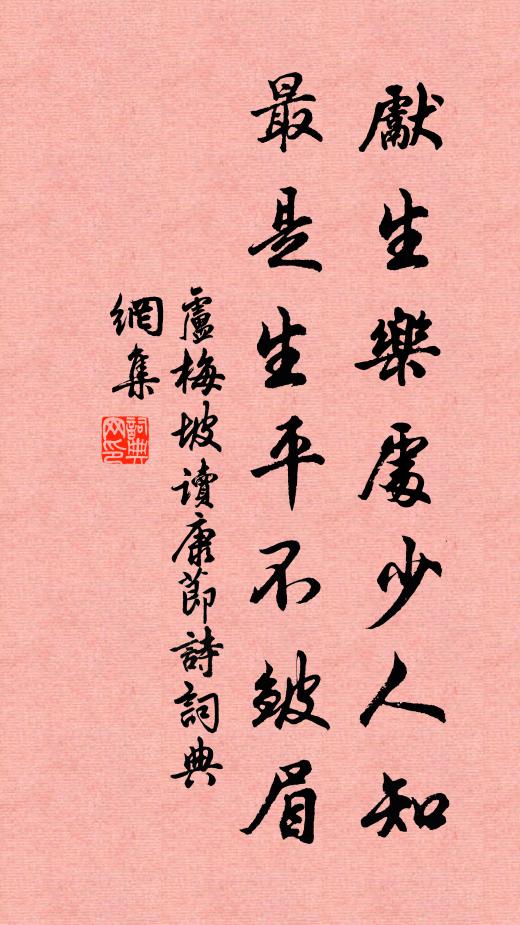 獻生樂處少人知
最是生平不皺眉
盧梅坡讀康節詩詞典
網集
詞典
网印